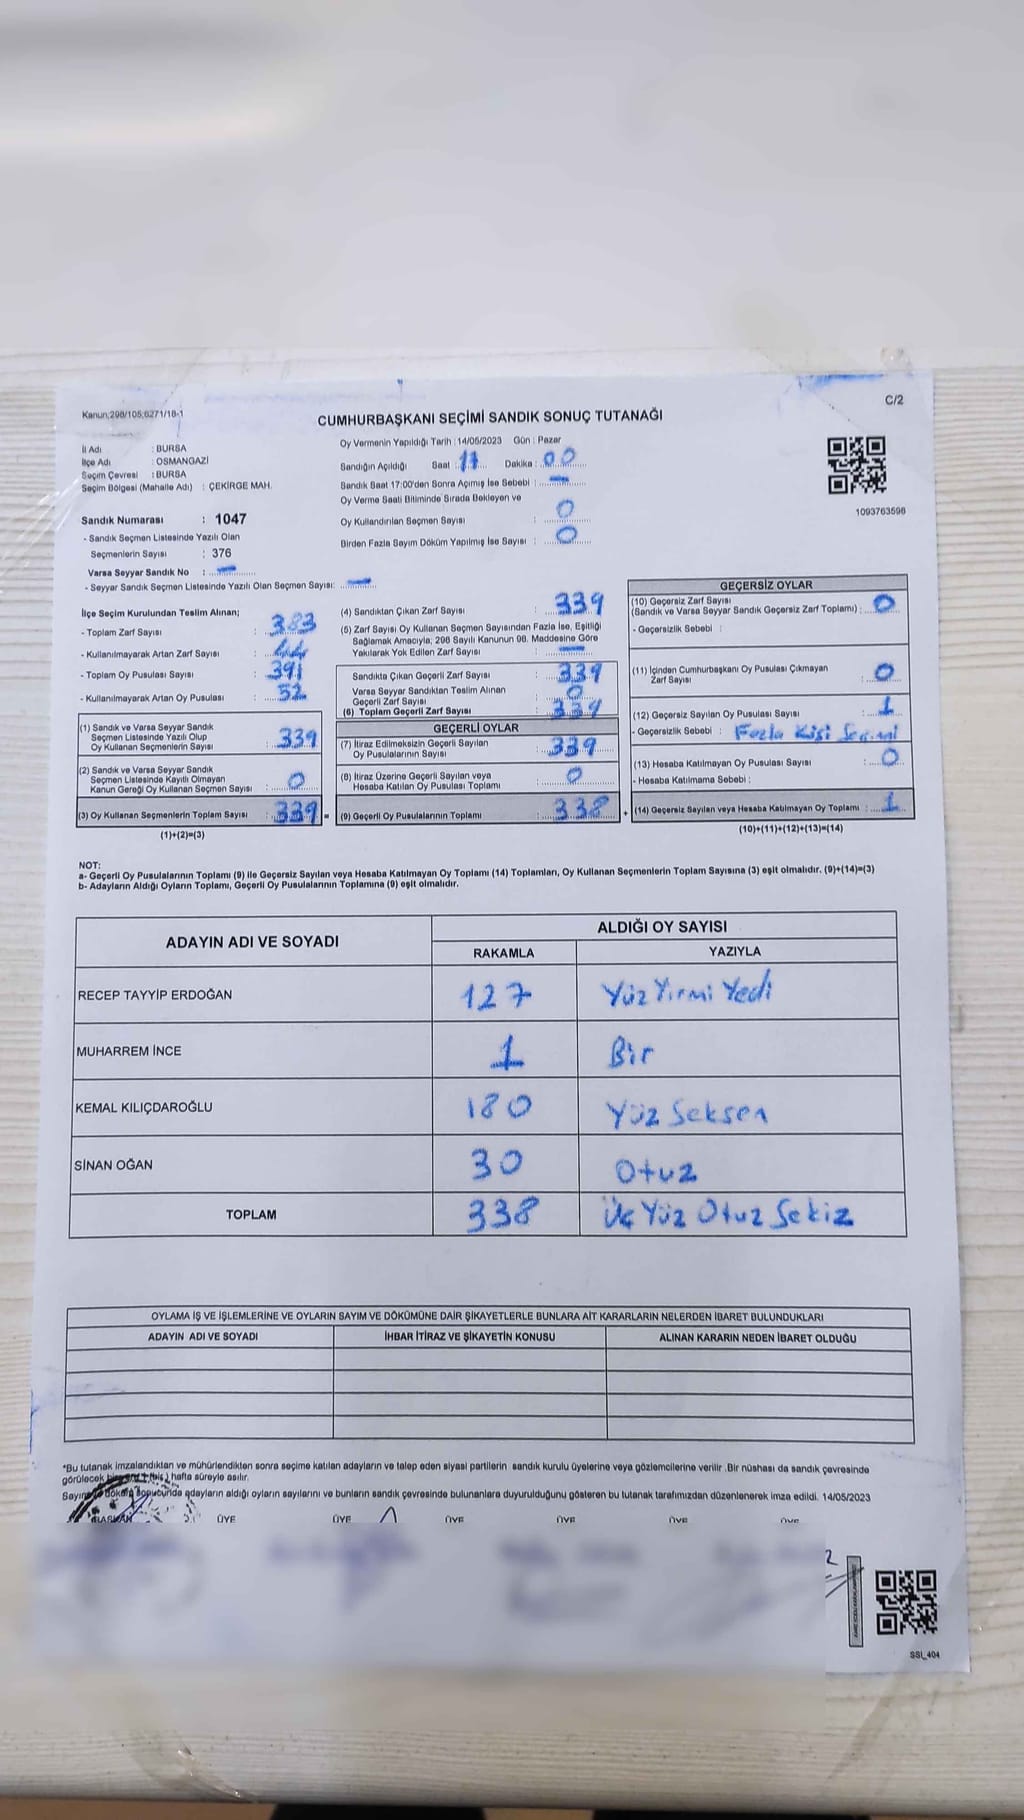 Kanun;298/105;6271/18-1
C/2
CUMHURBAŞKANI SEÇİMİ SANDIK SONUÇ TUTANAĞI
İl Adı : BURSA
İlçe Adı : OSMANGAZİ
Seçim Çevresi : BURSA
Seçim Bölgesi (Mahalle Adı) : ÇEKİRGE MAH.
Sandık Numarası : 1047
- Sandık Seçmen Listesinde Yazılı Olan
Seçmenlerin Sayısı : 376
Varsa Seyyar Sandık No : —
- Seyyar Sandık Seçmen Listesinde Yazılı Olan Seçmen Sayısı: —
Oy Vermenin Yapıldığı Tarih :14/05/2023 Gün : Pazar
Sandığın Açıldığı Saat 17 Dakika : 00
Sandık Saat 17:00'den Sonra Açımış İse Sebebi : —
Oy Verme Saati Bitiminde Sırada Bekleyen ve
Oy Kullandırılan Seçmen Sayısı : 0
Birden Fazla Sayım Döküm Yapılmış İse Sayısı : 0
1093763598
İlçe Seçim Kurulundan Teslim Alınan;
- Toplam Zarf Sayısı : 383
- Kullanılmayarak Artan Zarf Sayısı : 44
- Toplam Oy Pusulası Sayısı : 391
- Kullanılmayarak Artan Oy Pusulası : 52
(1) Sandık ve Varsa Seyyar Sandık
Seçmen Listesinde Yazılı Olup
Oy Kullanan Seçmenlerin Sayısı : 339
(2) Sandık ve Varsa Seyyar Sandık
Seçmen Listesinde Kayıtlı Olmayan
Kanun Gereği Oy Kullanan Seçmen Sayısı : 0
(3) Oy Kullanan Seçmenlerin Toplam Sayısı : 339
(1)+(2)=(3)
(4) Sandıktan Çıkan Zarf Sayısı : 339
(5) Zarf Sayısı Oy Kullanan Seçmen Sayısından Fazla İse, Eşitliği
Sağlamak Amacıyla; 298 Sayılı Kanunun 98. Maddesine Göre
Yakılarak Yok Edilen Zarf Sayısı : —
Sandıkta Çıkan Geçerli Zarf Sayısı : 339
Varsa Seyyar Sandıktan Teslim Alınan
Geçerli Zarf Sayısı : 0
(6) Toplam Geçerli Zarf Sayısı : 339
GEÇERLİ OYLAR
(7) İtiraz Edilmeksizin Geçerli Sayılan
Oy Pusulalarının Sayısı : 339
(8) İtiraz Üzerine Geçerli Sayılan veya
Hesaba Katılan Oy Pusulası Toplamı : 0
= (9) Geçerli Oy Pusulalarının Toplamı : 338
GEÇERSİZ OYLAR
(10) Geçersiz Zarf Sayısı
(Sandık ve Varsa Seyyar Sandık Geçersiz Zarf Toplamı) : 0
- Geçersizlik Sebebi :
(11) İçinden Cumhurbaşkanı Oy Pusulası Çıkmayan
Zarf Sayısı : 0
(12) Geçersiz Sayılan Oy Pusulası Sayısı : 1
- Geçersizlik Sebebi : Fazla Kişi Seçimi
(13) Hesaba Katılmayan Oy Pusulası Sayısı : 0
- Hesaba Katılmama Sebebi :
+ (14) Geçersiz Sayılan veya Hesaba Katılmayan Oy Toplamı : 1
(10)+(11)+(12)+(13)=(14)
NOT:
a- Geçerli Oy Pusulalarının Toplamı (9) ile Geçersiz Sayılan veya Hesaba Katılmayan Oy Toplamı (14) Toplamları, Oy Kullanan Seçmenlerin Toplam Sayısına (3) eşit olmalıdır. (9)+(14)=(3)
b- Adayların Aldığı Oyların Toplamı, Geçerli Oy Pusulalarının Toplamına (9) eşit olmalıdır.
ADAYIN ADI VE SOYADI
ALDIĞI OY SAYISI
RAKAMLA YAZIYLA
RECEP TAYYİP ERDOĞAN 127 Yüz Yirmi Yedi
MUHARREM İNCE 1 Bir
KEMAL KILIÇDAROĞLU 180 Yüz Seksen
SİNAN OĞAN 30 Otuz
TOPLAM 338 Üç Yüz Otuz Sekiz
OYLAMA İŞ VE İŞLEMLERİNE VE OYLARIN SAYIM VE DÖKÜMÜNE DAİR ŞİKAYETLERLE BUNLARA AİT KARARLARIN NELERDEN İBARET BULUNDUKLARI
ADAYIN ADI VE SOYADI İHBAR İTİRAZ VE ŞİKAYETİN KONUSU ALINAN KARARIN NEDEN İBARET OLDUĞU
*Bu tutanak imzalandıktan ve mühürlendikten sonra seçime katılan adayların ve talep eden siyasi partilerin sandık kurulu üyelerine veya gözlemcilerine verilir .Bir nüshası da sandık çevresinde
görülecek bir hafta süreyle asılır.
sonucunda adayların aldığı oyların sayılarını ve bunların sandık çevresinde bulunanlara duyurulduğunu gösteren bu tutanak tarafımızdan düzenlenerek imza edildi. 14/05/2023
BAŞKAN ÜYE ÜYE ÜYE ÜYE ÜYE ÜYE
SSI_404